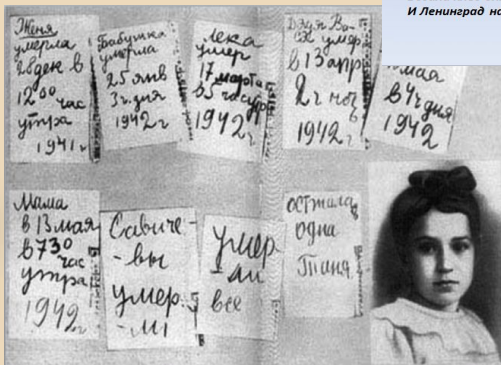 И Ленинград на
Женя
умерла
28 дек в
12 00 час
утра
1941 г
Бабушка
умерла
25 янв
3 ч. дня
1942 г
Лека
умер
17 марта
в 5 час утр
1942 г
Дядя Ва-
ся умер
в 13 апр
2 ч ночь
1942 г
мая
в 4 ч дня
1942
Мама
в 13 мая
в 7 30
час
утра
1942 г
Савиче-
-вы
умер-
-ли
Умер-
-ли
все
Осталась
одна
Таня